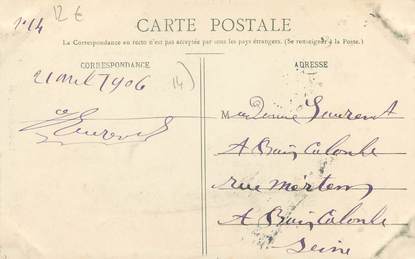 1.14 12 €
CARTE POSTALE
La Correspondance au recto n'est pas acceptée par tous les pays étrangers. (Se renseigner à la Poste.)
CORRESPONDANCE
ADRESSE
1906
14
Madame Laurent
A Bois Colombe
rue Mertens
A Bois Colombe
Seine